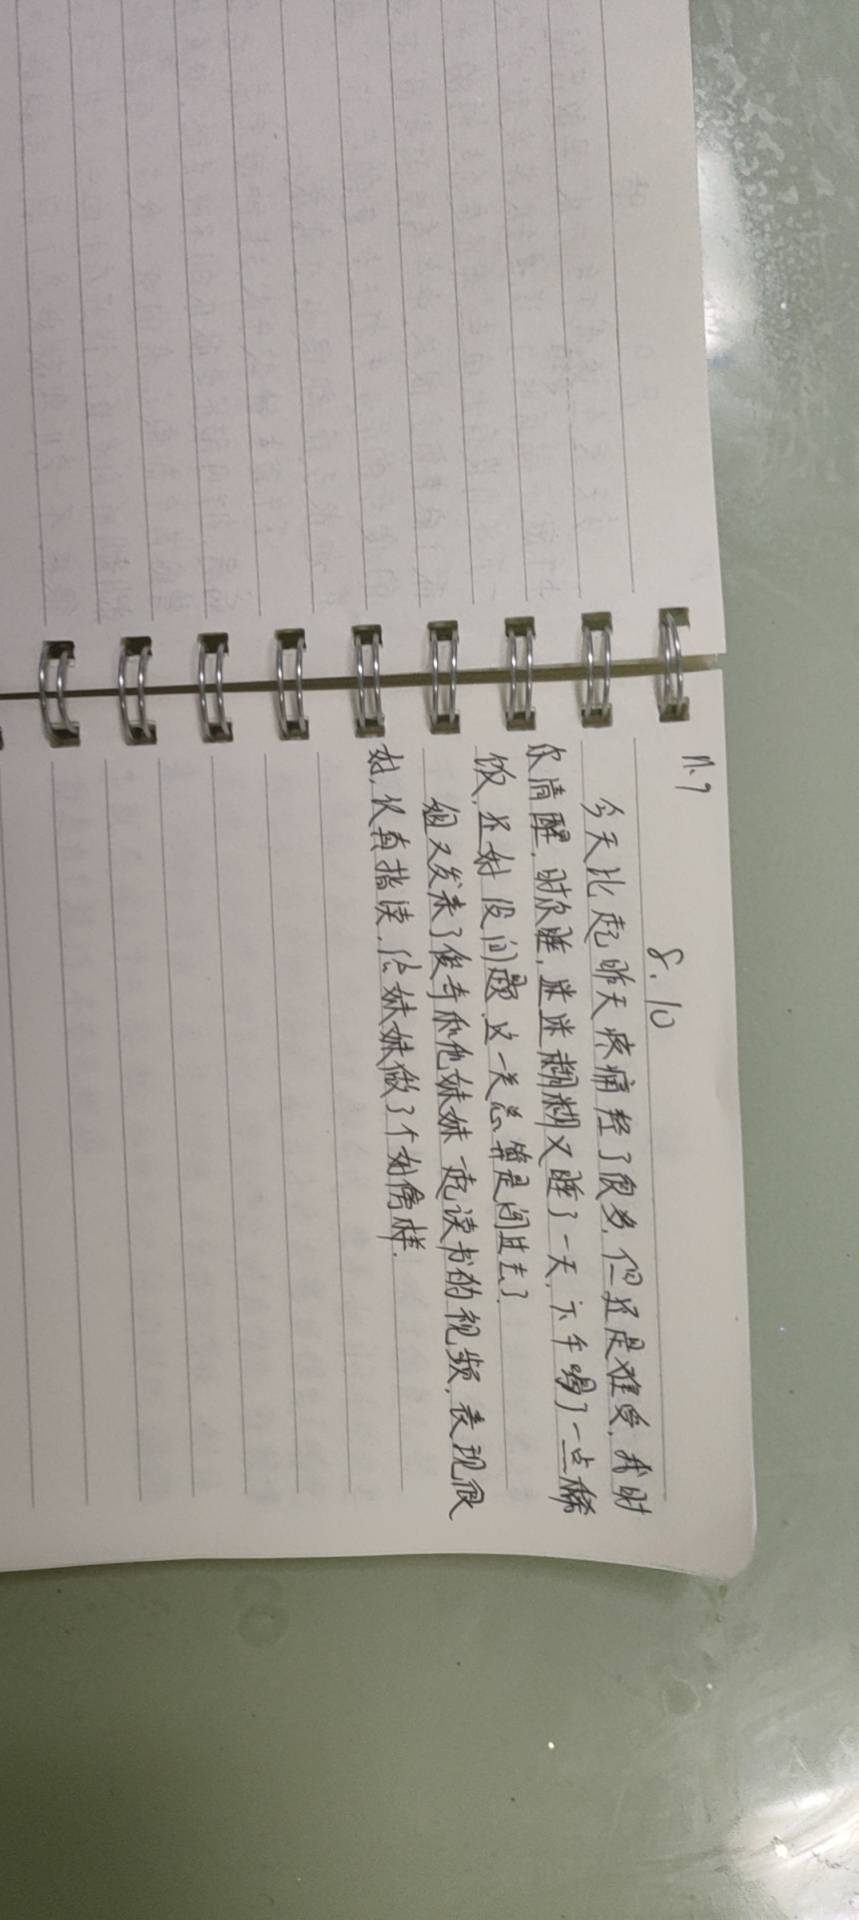 11.9
8.10
今天比起昨天疼痛轻了很多,但还是难受,我时
尔清醒,时尔睡,迷迷糊糊又睡了一天,下午喝了一点稀
饭,还好没问题,这一天总算是闯过去了.
姐又发来了俊奇和他妹妹一起读书的视频,表现很
好,认真指读,给妹妹做了个好榜样.